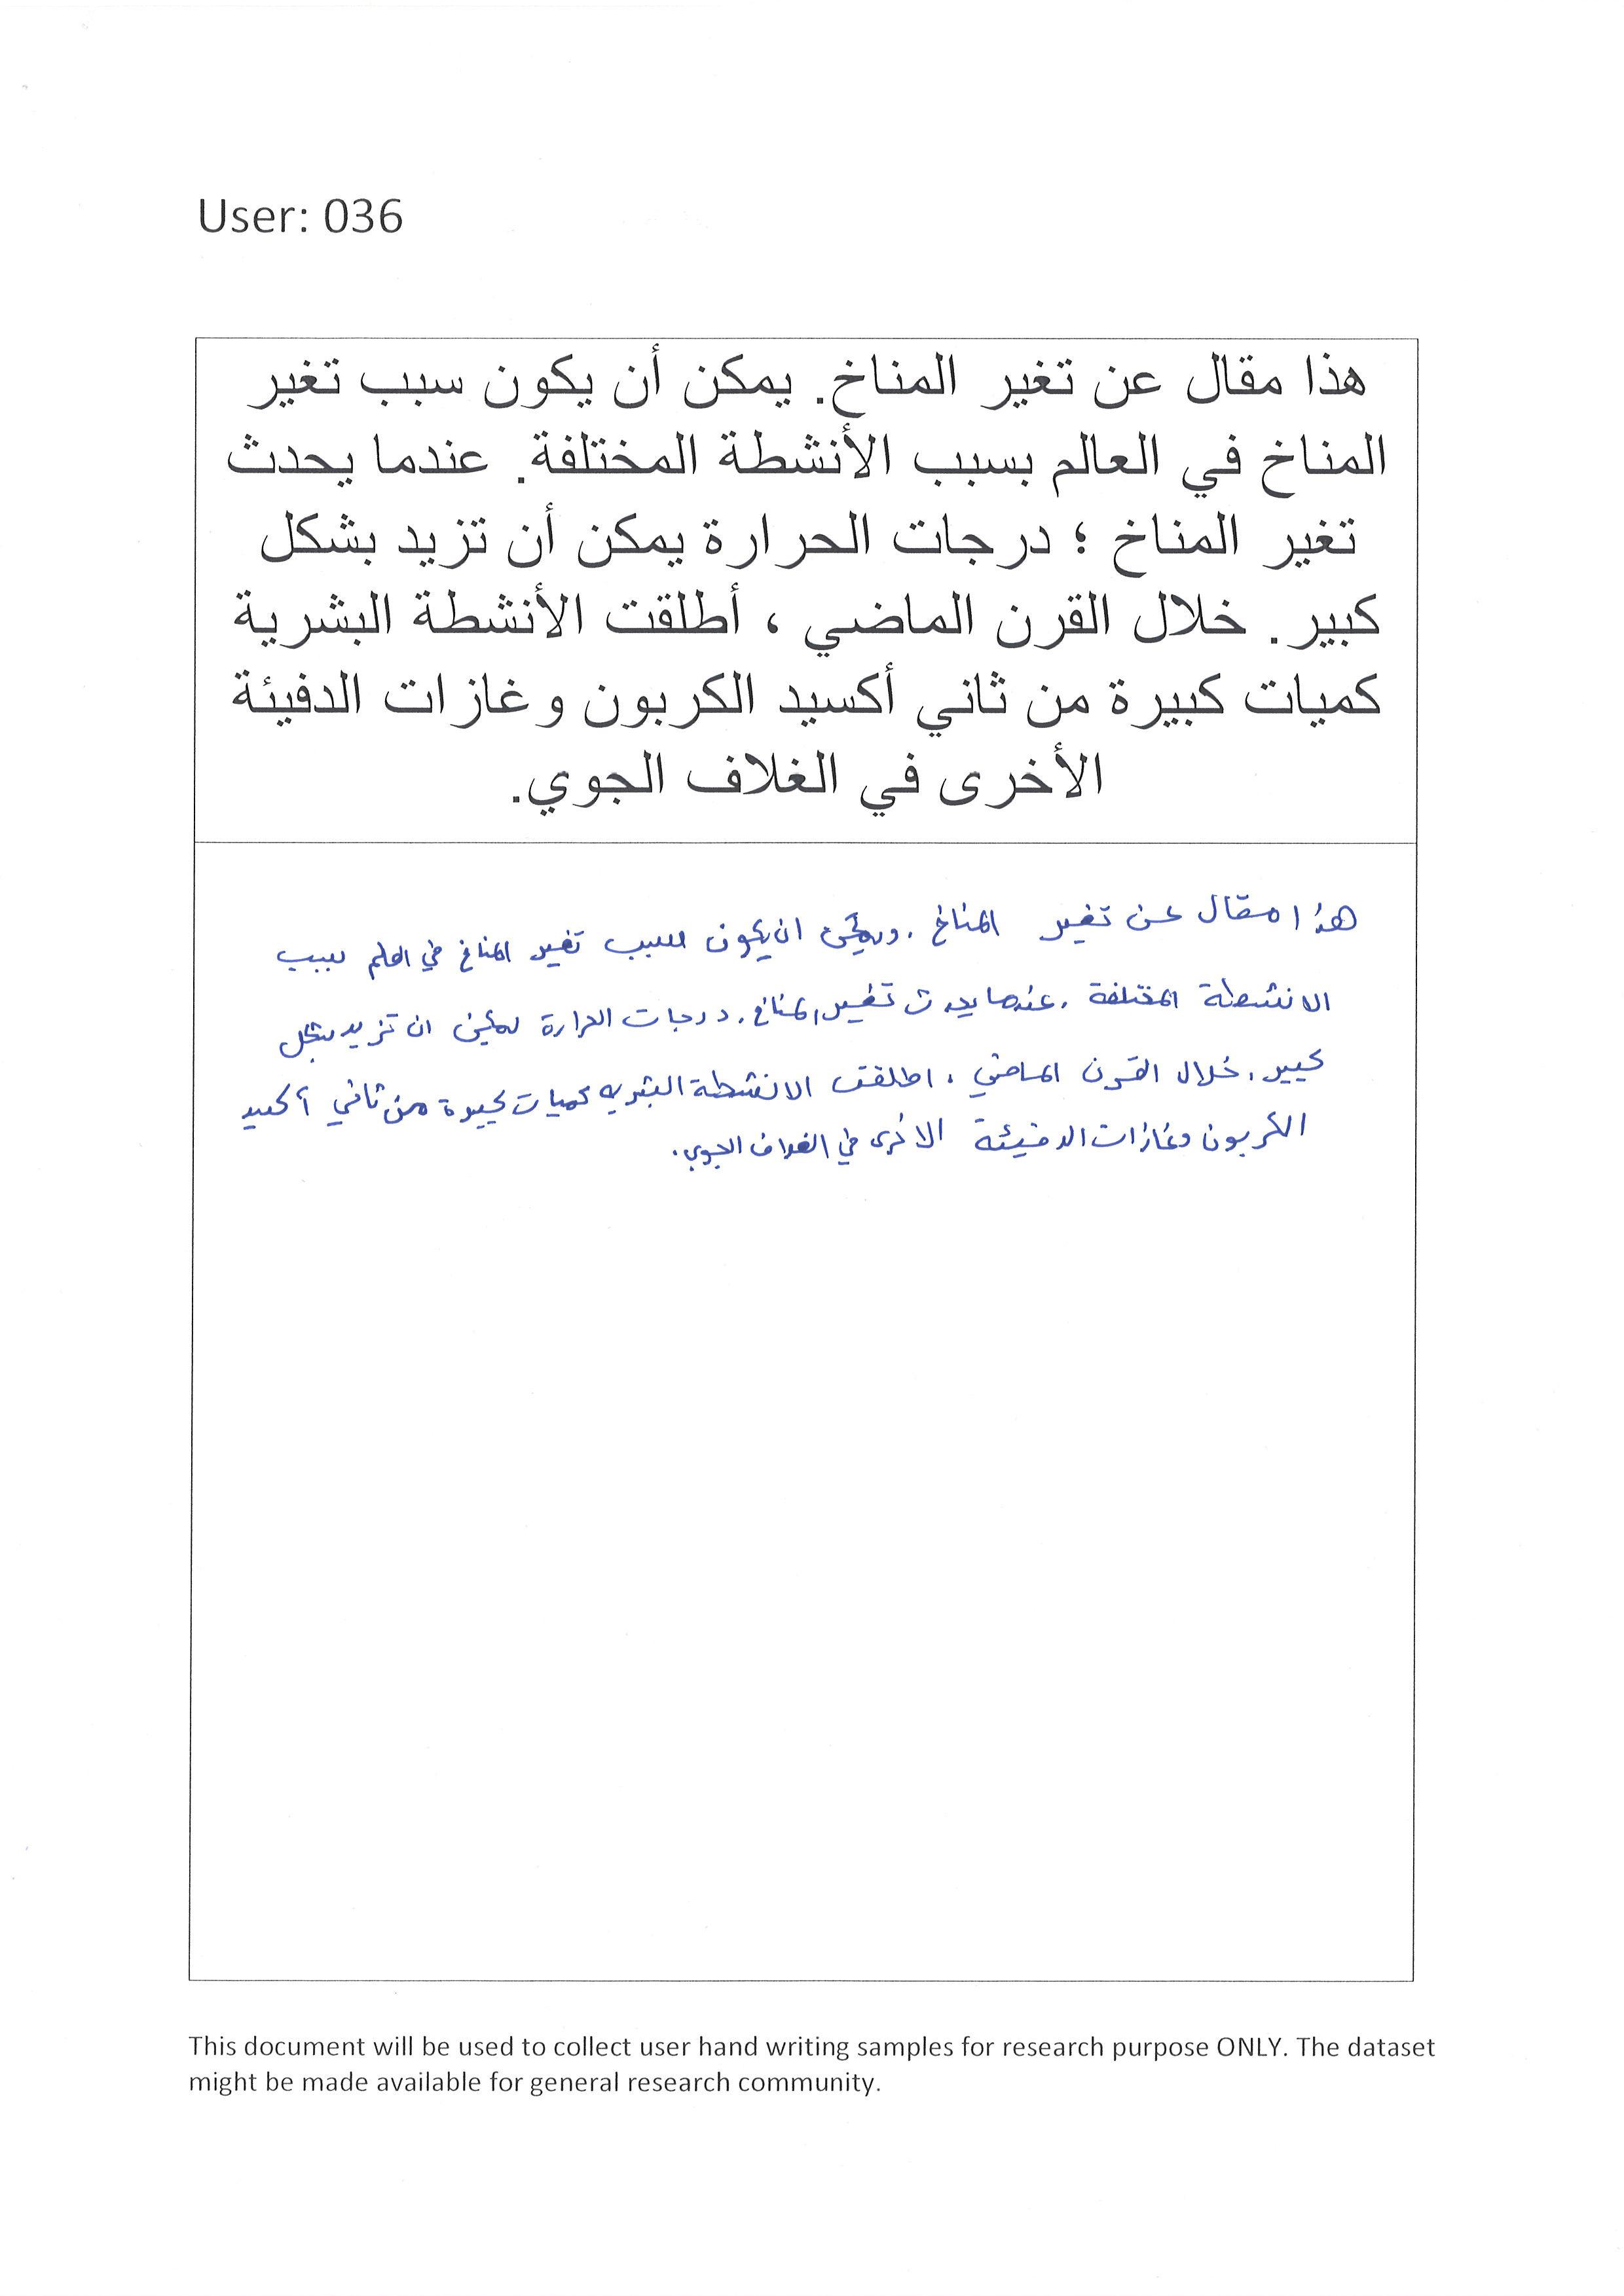 User: 036
هذا مقال عن تغير المناخ. يمكن أن يكون سبب تغير
المناخ في العالم بسبب الأنشطة المختلفة. عندما يحدث
تغير المناخ ؛ درجات الحرارة يمكن أن تزيد بشكل
كبير. خلال القرن الماضي ، أطلقت الأنشطة البشرية
كميات كبيرة من ثاني أكسيد الكربون وغازات الدفيئة
الأخرى في الغلاف الجوي.
هذا مقال عن تغير المناخ . ويمكن ان يكون سبب تغير المناخ في العلم بسبب
الانشطة المختلفة . عندما يحدث تغير المناخ . درجات الحرارة يمكن ان تزيد بشكل
كبير . خلال القرن الماضي ، اطلقت الانشطة البشريه كميات كبيرة من ثاني أكسيد
الكربون وغازات الدفيئة الاخرى في الغلاف الجوي .
This document will be used to collect user hand writing samples for research purpose ONLY. The dataset
might be made available for general research community.